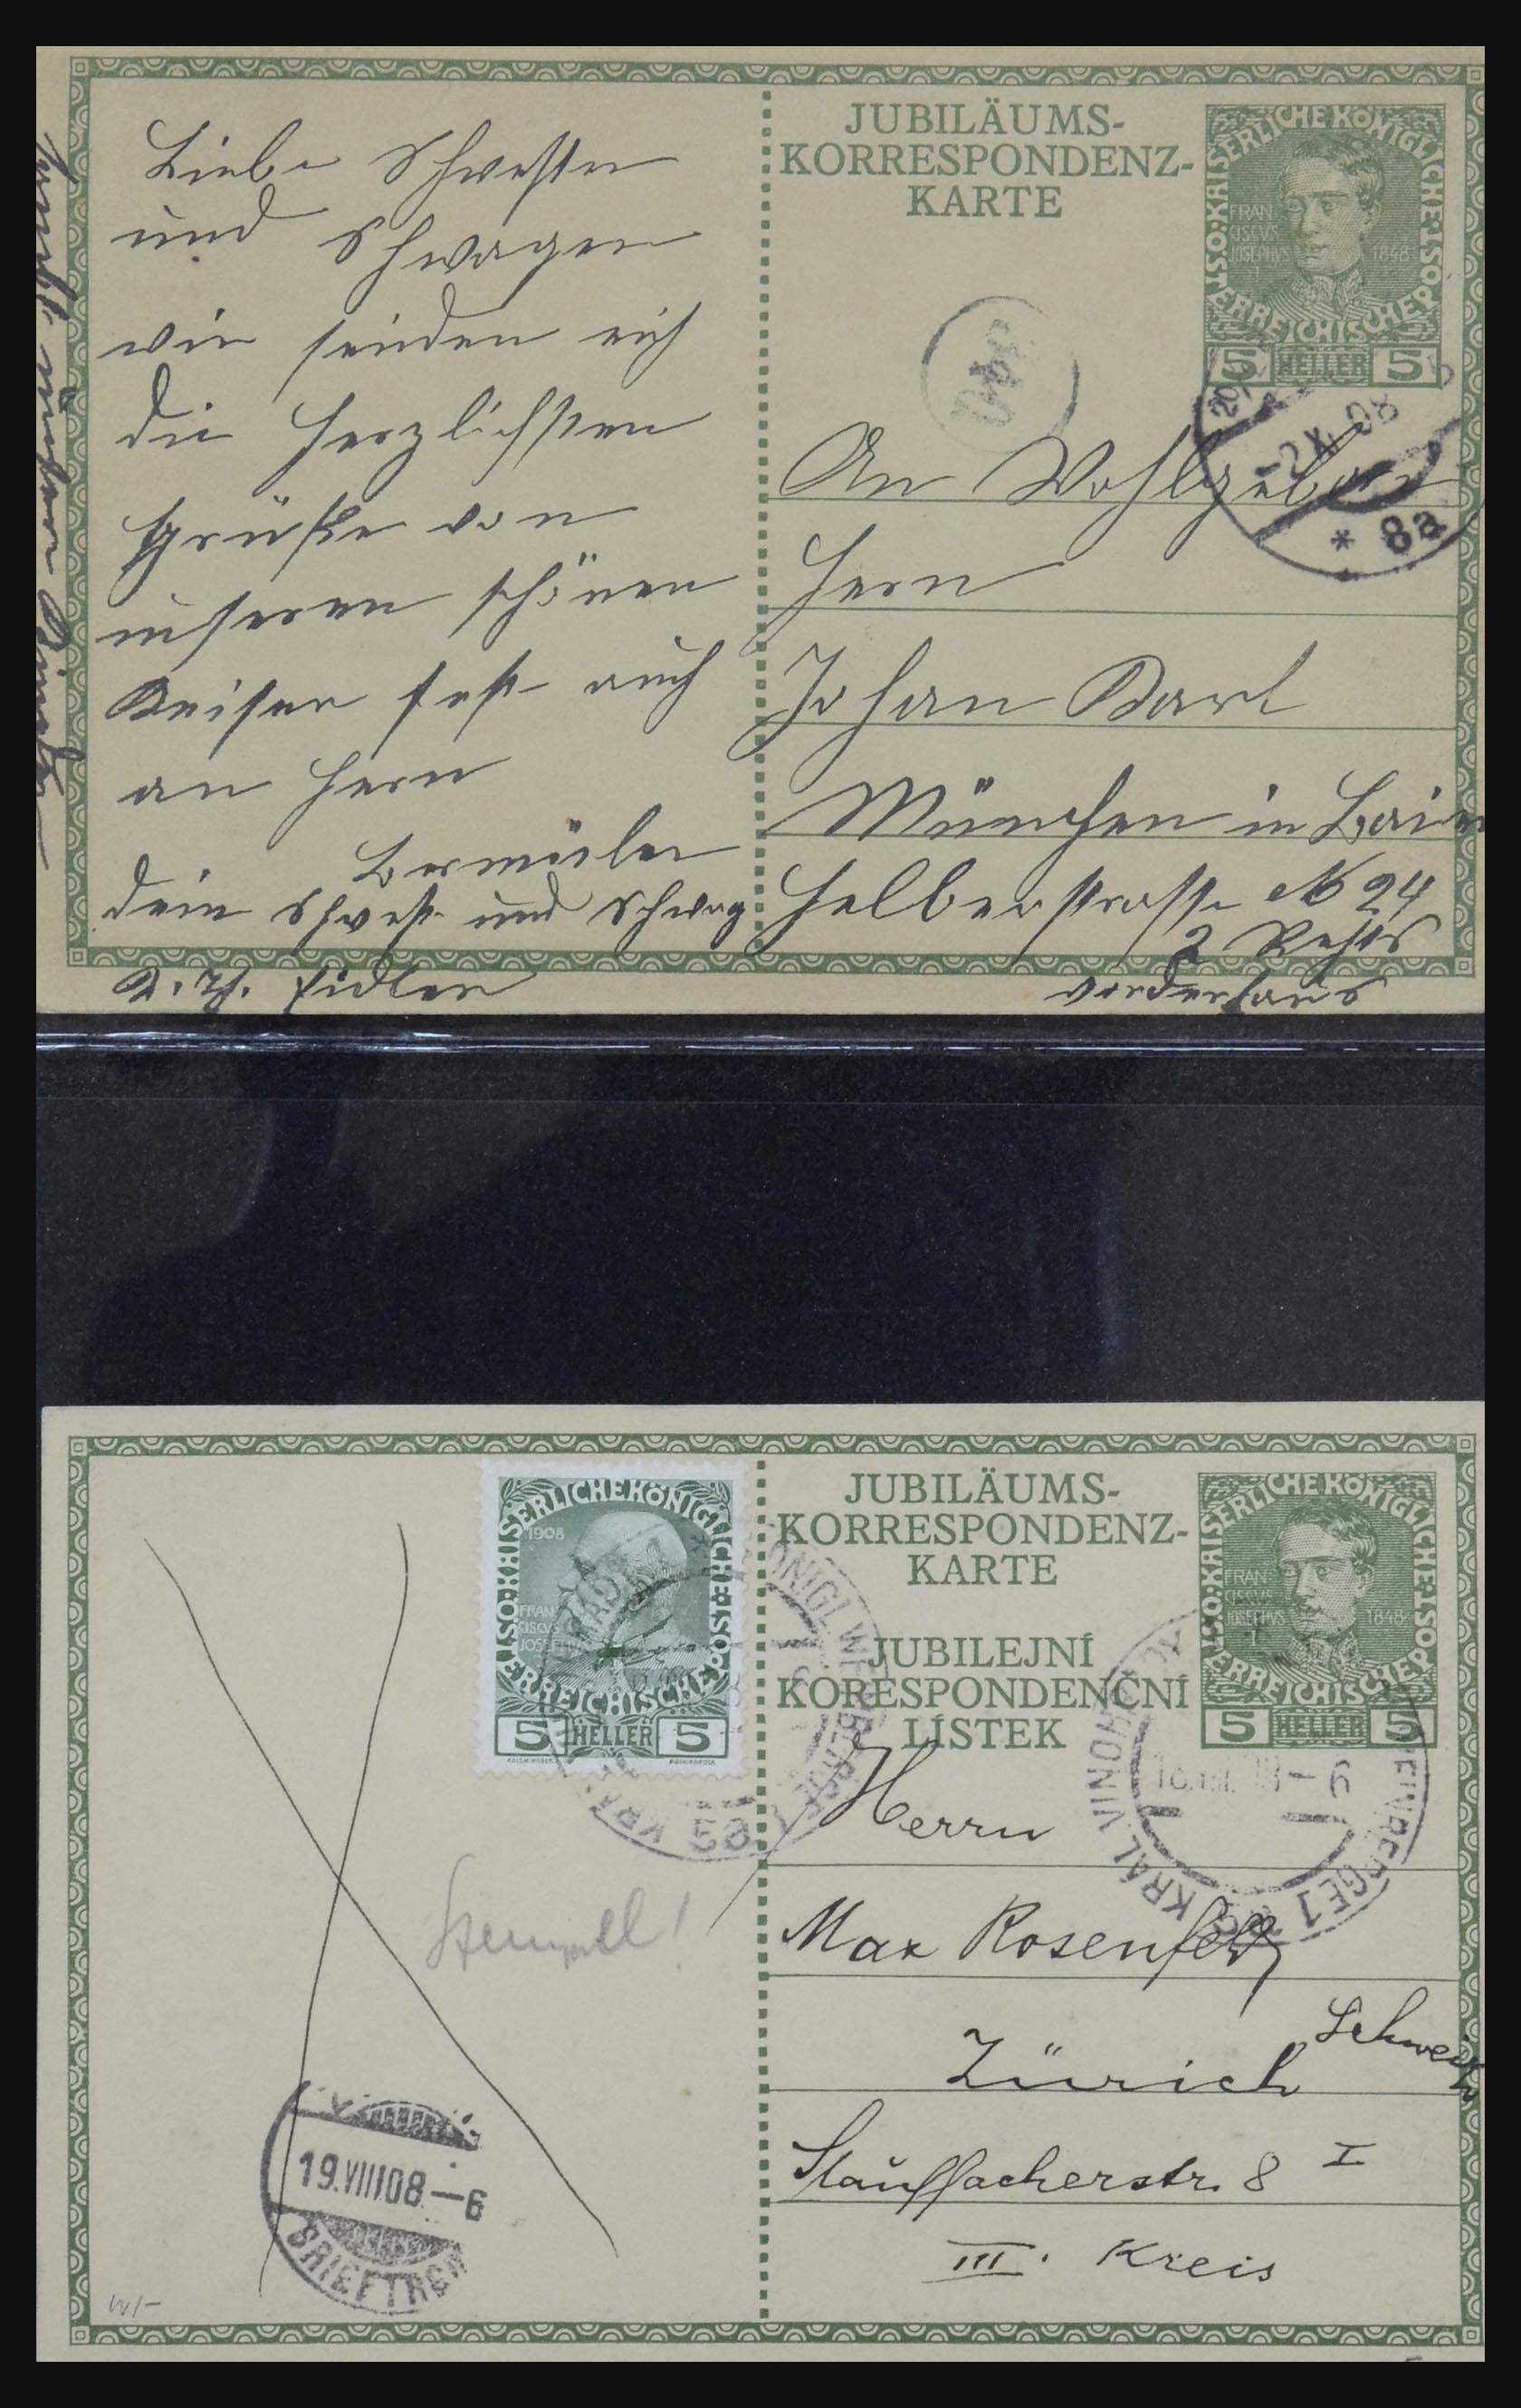 JUBILÄUMS-
KORRESPONDENZ-
KARTE
KAISERLICHE KÖNIGLICHE ÖSTERREICHISCHE POST
FRAN
CISCVS
JOSEPHVS
I
1848
5 HELLER 5
Liebe Schwester
und Schwager
wir senden eich
die herzlichsten
Grüße von
unseren schönen
Keiser fest auch
an Hern
dein Schwest und Schwag
K. Fidler
-2 X 08
* 8a
An Wohlgeboren
Hern
Johan Karl
München in Baiern
Helberstrasse No 24
2 Rechts
vorderhaus
JUBILÄUMS-
KORRESPONDENZ-
KARTE
JUBILEJNÍ
KORESPONDENČNÍ
LÍSTEK
KAISERLICHE KÖNIGLICHE ÖSTERREICHISCHE POST
1908
FRAN
CISCVS
JOSEPHVS
5 HELLER 5
KAISERLICHE KÖNIGLICHE ÖSTERREICHISCHE POST
FRAN
CISCVS
JOSEPHVS
I
1848
5 HELLER 5
KRÁL. VINOHRADY
Herrn
Max Rosenfeld
Zürich Schweiz
Stauffacherstr. 8 I
III. Kreis
Stempel!
19.VIII08.-6
BRIEFTRG